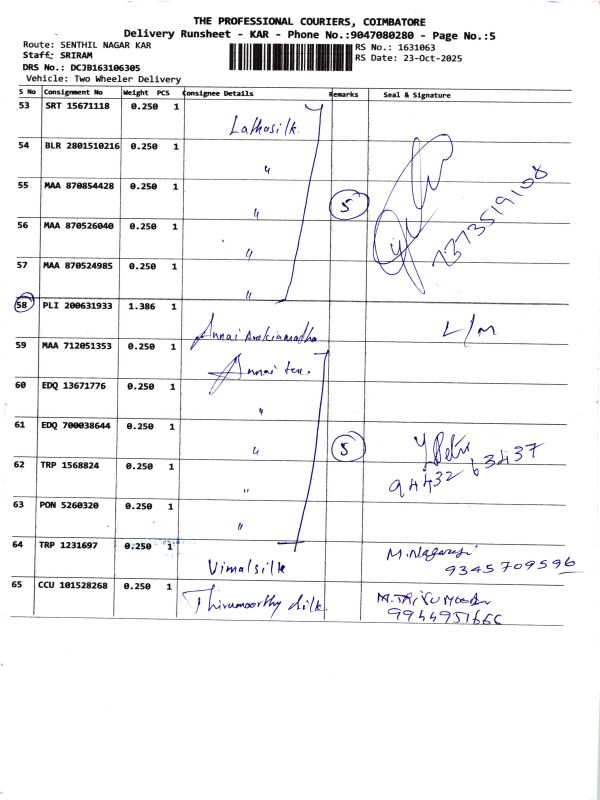 THE PROFESSIONAL COURIERS, COIMBATORE
Delivery Runsheet - KAR - Phone No.:9047080280 - Page No.:5
Route: SENTHIL NAGAR KAR
RS No.: 1631063
Staff: SRIRAM
RS Date: 23-Oct-2025
DRS No.: DCJB163106305
Vehicle: Two Wheeler Delivery
S No Consignment No Weight PCS Consignee Details Remarks Seal & Signature
53 SRT 15671118 0.250 1
Lathasilk.
54 BLR 2801510216 0.250 1
"
55 MAA 870854428 0.250 1
" 5 7373519108
56 MAA 870526040 0.250 1
"
57 MAA 870524985 0.250 1
"
58 PLI 200631933 1.386 1
Annai Arokiamadha L/M
59 MAA 712051353 0.250 1
Annai tex.
60 EDQ 13671776 0.250 1
"
61 EDQ 700038644 0.250 1
" 5
62 TRP 1568824 0.250 1
" 9443263437
63 PON 5260320 0.250 1
"
64 TRP 1231697 0.250 1
Vimalsilk M.Nagaraj
9345709596
65 CCU 101528268 0.250 1
Thirumoorthy silk.
9944951666